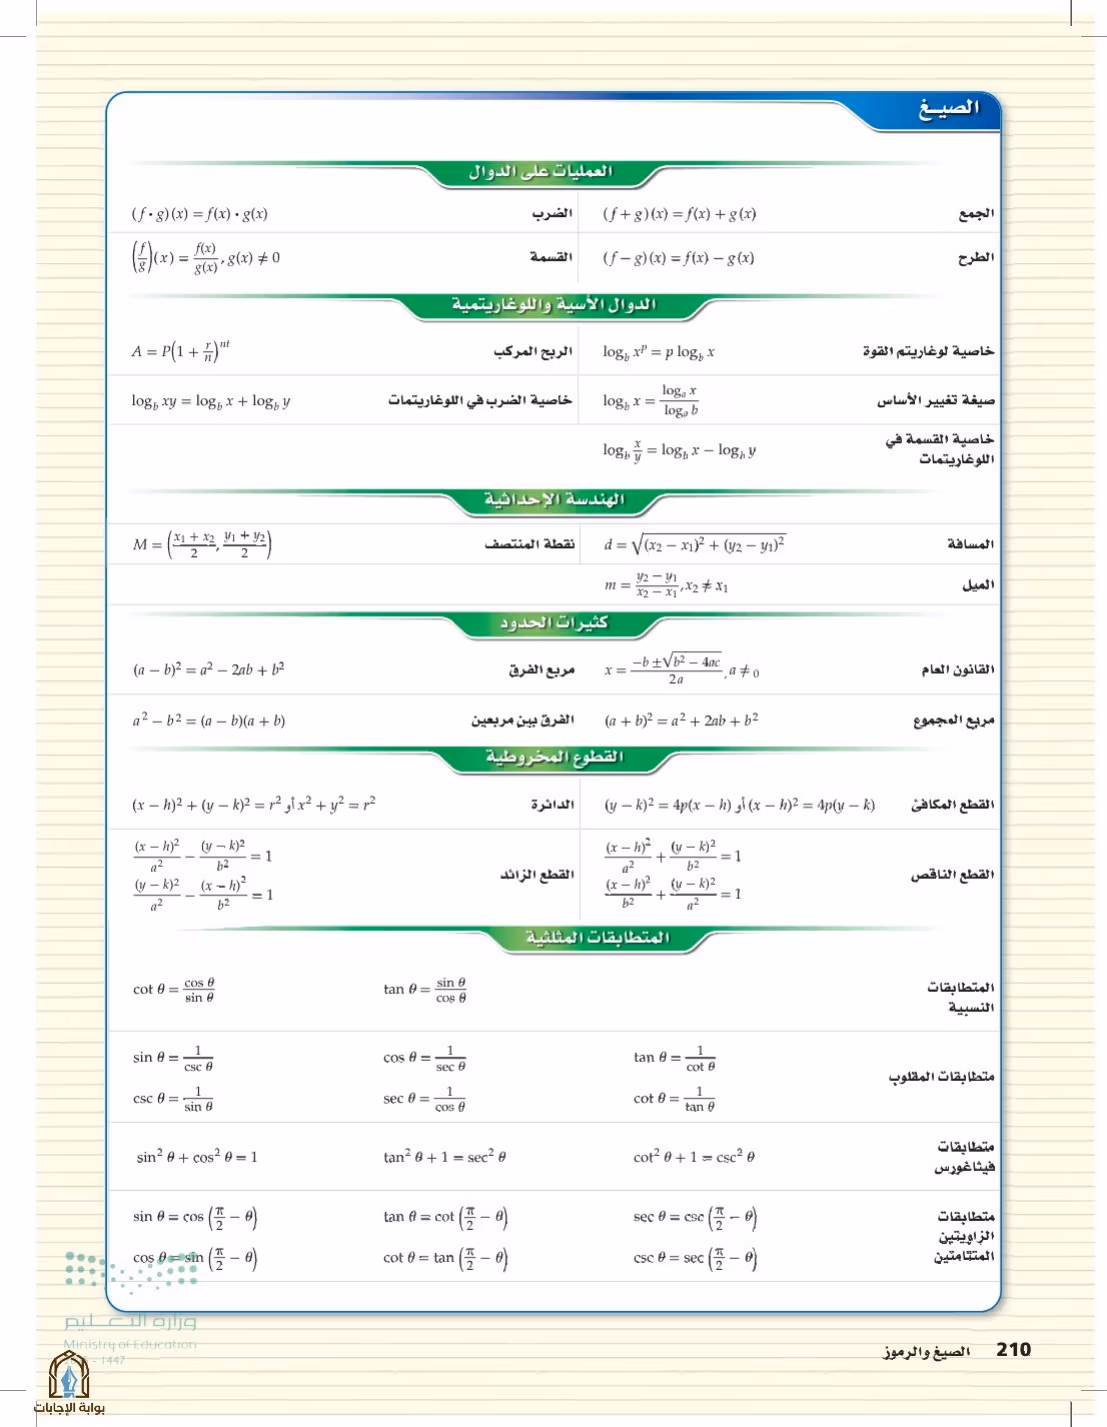 الصيغ
العمليات على الدوال
الجمع (f + g)(x) = f(x) + g(x) الضرب (f · g)(x) = f(x) · g(x)
الطرح (f − g)(x) = f(x) − g(x) القسمة (f/g)(x) = f(x)/g(x), g(x) ≠ 0
الدوال الأسية واللوغاريتمية
خاصية لوغاريتم القوة log_b x^p = p log_b x الربح المركب A = P(1 + r/n)^nt
صيغة تغيير الأساس log_b x = log_a x / log_a b خاصية الضرب في اللوغاريتمات log_b xy = log_b x + log_b y
خاصية القسمة في
اللوغاريتمات log_b x/y = log_b x − log_b y
الهندسة الإحداثية
المسافة d = √((x₂ − x₁)² + (y₂ − y₁)²) نقطة المنتصف M = ((x₁ + x₂)/2, (y₁ + y₂)/2)
الميل m = (y₂ − y₁)/(x₂ − x₁), x₂ ≠ x₁
كثيرات الحدود
القانون العام x = (−b ± √(b² − 4ac))/2a, a ≠ 0 مربع الفرق (a − b)² = a² − 2ab + b²
مربع المجموع (a + b)² = a² + 2ab + b² الفرق بين مربعين a² − b² = (a − b)(a + b)
القطوع المخروطية
القطع المكافئ (y − k)² = 4p(x − h) أو (x − h)² = 4p(y − k) الدائرة (x − h)² + (y − k)² = r² أو x² + y² = r²
القطع الناقص (x − h)²/a² + (y − k)²/b² = 1 القطع الزائد (x − h)²/a² − (y − k)²/b² = 1
(x − h)²/b² + (y − k)²/a² = 1 (y − k)²/a² − (x − h)²/b² = 1
المتطابقات المثلثية
المتطابقات
النسبية tan θ = sin θ/cos θ cot θ = cos θ/sin θ
متطابقات المقلوب
sin θ = 1/csc θ cos θ = 1/sec θ tan θ = 1/cot θ
csc θ = 1/sin θ sec θ = 1/cos θ cot θ = 1/tan θ
متطابقات
فيثاغورس
sin² θ + cos² θ = 1 tan² θ + 1 = sec² θ cot² θ + 1 = csc² θ
متطابقات
الزاويتين
المتتامتين
sin θ = cos (π/2 − θ) tan θ = cot (π/2 − θ) sec θ = csc (π/2 − θ)
cos θ = sin (π/2 − θ) cot θ = tan (π/2 − θ) csc θ = sec (π/2 − θ)
وزارة التعليم
Ministry of Education
- 1447
210 الصيغ والرموز
بوابة الإجابات